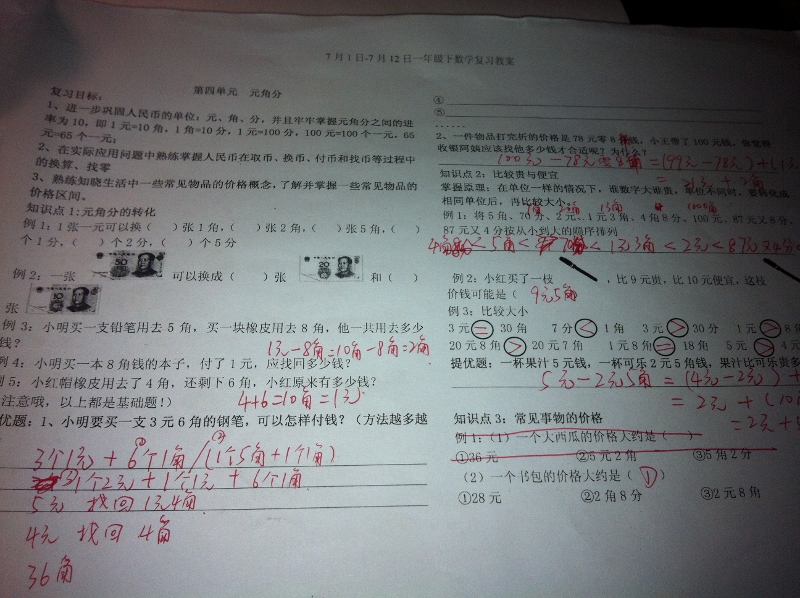 7月1日-7月12日一年级下数学复习教案
复习目标: 第四单元 元角分
1、进一步巩固人民币的单位:元、角、分,并且牢牢掌握元角分之间的进
率为10,即1元=10角,1角=10分,1元=100分,100元=100个一元,65
元=65个一元;
2、在实际应用问题中熟练掌握人民币在取币、换币、付币和找币等过程中
的换算、找零
3、熟练知晓生活中一些常见物品的价格概念,了解并掌握一些常见物品的
价格区间。
知识点1:元角分的转化
例1:1张一元可以换( )张1角,( )张2角,( )张5角,( )
个1分,( )个2分,( )个5分
例2:一张 可以换成( )张 和( )
张
例3:小明买一支铅笔用去5角,买一块橡皮用去8角,他一共用去多少
钱?
1元-8角=10角-8角=2角
例4:小明买一本8角钱的本子,付了1元,应找回多少钱?
例5:小红帽橡皮用去了4角,还剩下6角,小红原来有多少钱?
注意哦,以上都是基础题!)
4+6=10角=1元
优题:1、小明要买一支3元6角的钢笔,可以怎样付钱?(方法越多越
3个1元+6个1角/(1个5角+1个1角)
1个2元+1个1元+6个1角
5元 找回 1元4角
4元 找回 4角
36角
④
⑤
......
2、一件物品打完折的价格是78元零8 钱,小王带了100元钱,
收银阿姨应该找他多少钱才合适呢?为什么?
知识点2:比较贵与便宜
掌握原理:在单位一样的情况下,谁数字大谁贵,单位不同时,要转化成
相同单位后,再比较大小。
例1:将5角、70分、2元、1元3角、4角8分、100元、87元又8分、
87元又4分按从小到大的顺序排列
例2:小红买了一枝 ,比9元贵,比10元便宜,这枝
价钱可能是( 9元5角
例3:比较大小
3元=30角 7分<1角 3元>30分 1元>8
20元8角>20元7角 1元8角=18角 5元>4元
提优题:一杯果汁5元钱,一杯可乐2元5角钱,果汁比可乐贵多
5元-2元5角=(4元-2元)+
=2元+(10
=2元+
知识点3:常见事物的价格
例1:(1)一个大西瓜的价格大约是( )
①36元 ②5元2角 ③5角2分
(2)一个书包的价格大约是( ① )
①28元 ②2角8分 ③2元8角